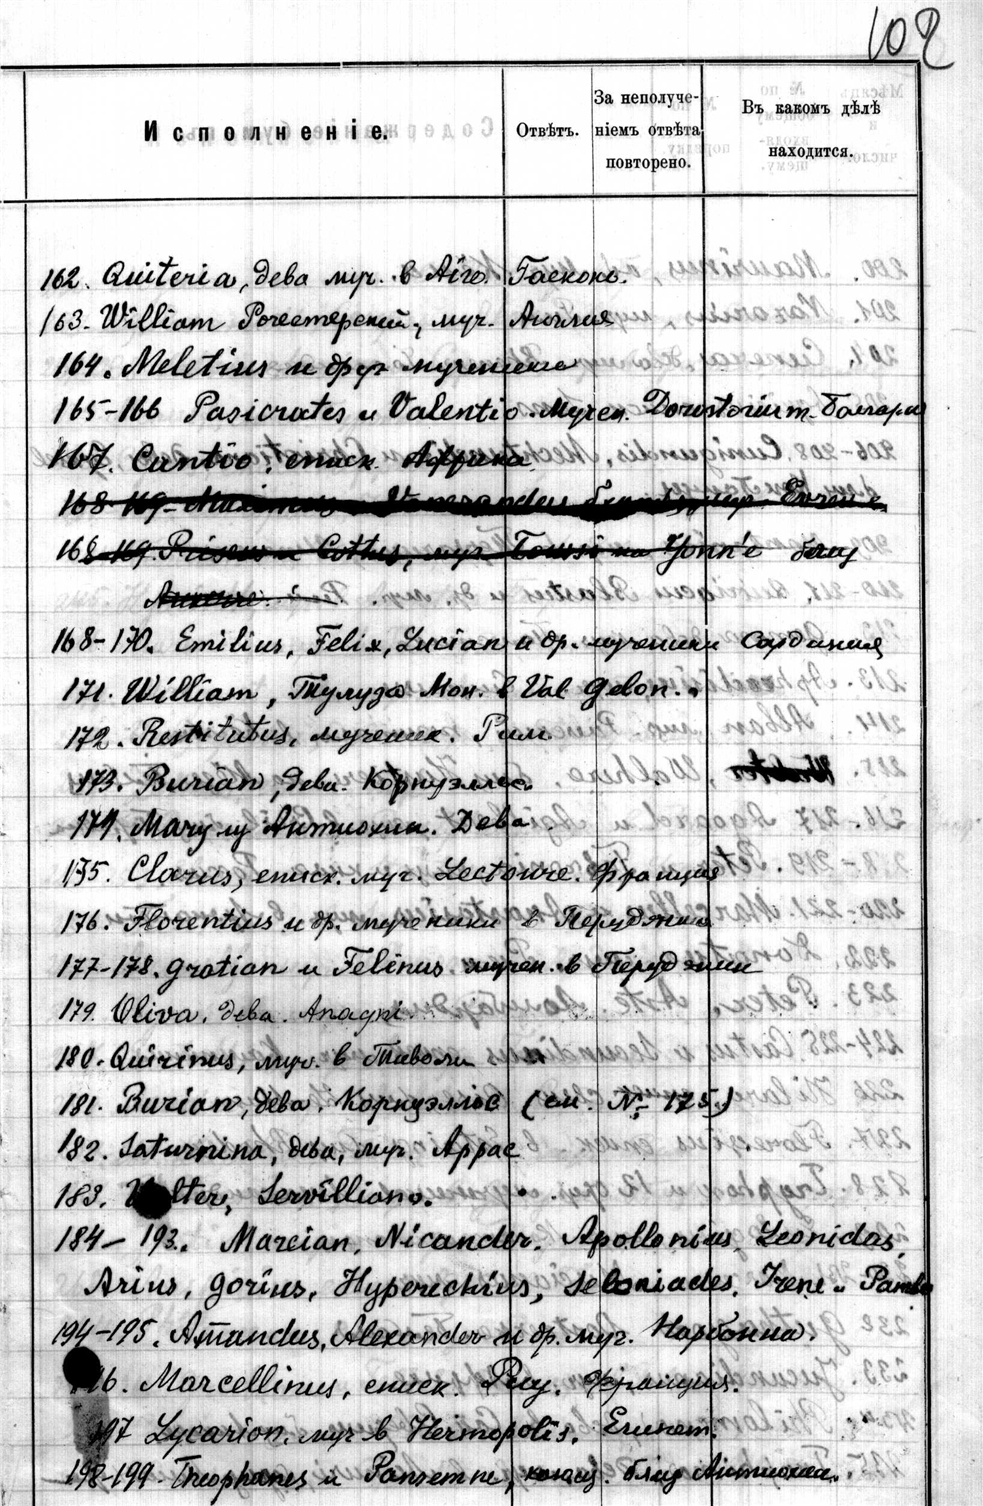 102
Исполненіе.
Отвѣтъ.
За неполуче-
ніемъ отвѣта
повторено.
Въ какомъ дѣлѣ
находится.
162. Quiteria, дева муч. в Aire. Гасконь.
163. William Рочестерский, муч. Англия
164. Meletius и друг мученики
165-166 Pasicrates и Valentio. Мучен. Dorostorium. Болгари
167. Cantio, еписк. Африка
168-169 Maximus Venerandus муч. Evreux
168-169 Priscus и Cottus, муч. Toussi на Yonn'e близ
168-170. Emilius, Felix, Lucian и др. мученики Сардиния
171. William, Тулуза Мон. в Val Gelon.
172. Restitutus, мученик. Рим.
173. Burian, дева. Корнуэллес.
174. Mary из Антиохии. Дева.
175. Clarus, еписк. муч. Lectoure. Франция
176. Florentius и др. мученики в Перуджии
177-178. Gratian и Felinus мучен. в Перуджии
179. Oliva. дева. Anagni.
180. Quirinus, муч. в Тиволи
181. Burian, дева. Корнуэллс (см. № 173.)
182. Saturnina, дева, муч. Аррас
183. Walter, Servilliano.
184-193. Marcian, Nicander, Apollonius, Leonidas,
Arius, Gorius, Hyperechius, Seloniades, Irene и Pambo
194-195. Amandus, Alexander и др. муч. Нарбонна.
196. Marcellinus, еписк. Пюу. Франция.
197 Lycarion, муч в Hermopolis. Египет.
198-199. Theophanes и Pansemne, близ Антиохии.